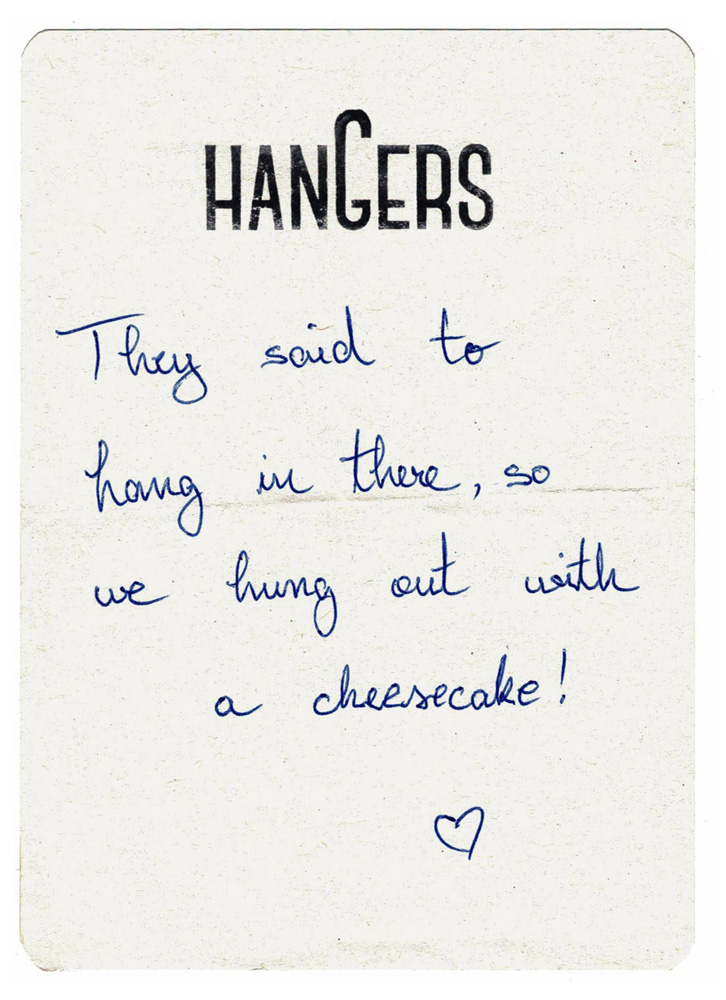 HANGERS
They said to
hang in there, so
we hung out with
a cheesecake!